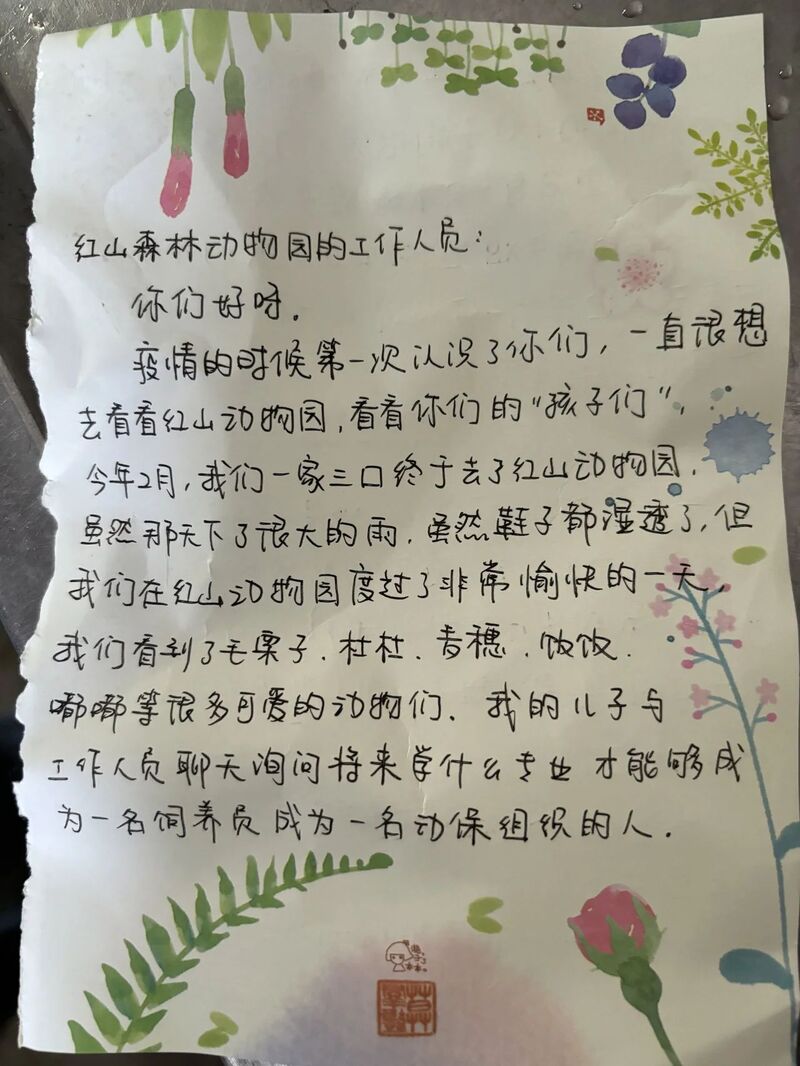 红山森林动物园的工作人员：
你们好呀。
疫情的时候第一次认识了你们，一直很想
去看看红山动物园，看看你们的“孩子们”，
今年2月，我们一家三口终于去了红山动物园，
虽然那天下了很大的雨，虽然鞋子都湿透了，但
我们在红山动物园度过了非常愉快的一天，
我们看到了毛栗子、杜杜、杏穗、饭饭、
嘟嘟等很多可爱的动物们．我的儿子与
工作人员聊天询问将来学什么专业才能够成
为一名饲养员成为一名动保组织的人．